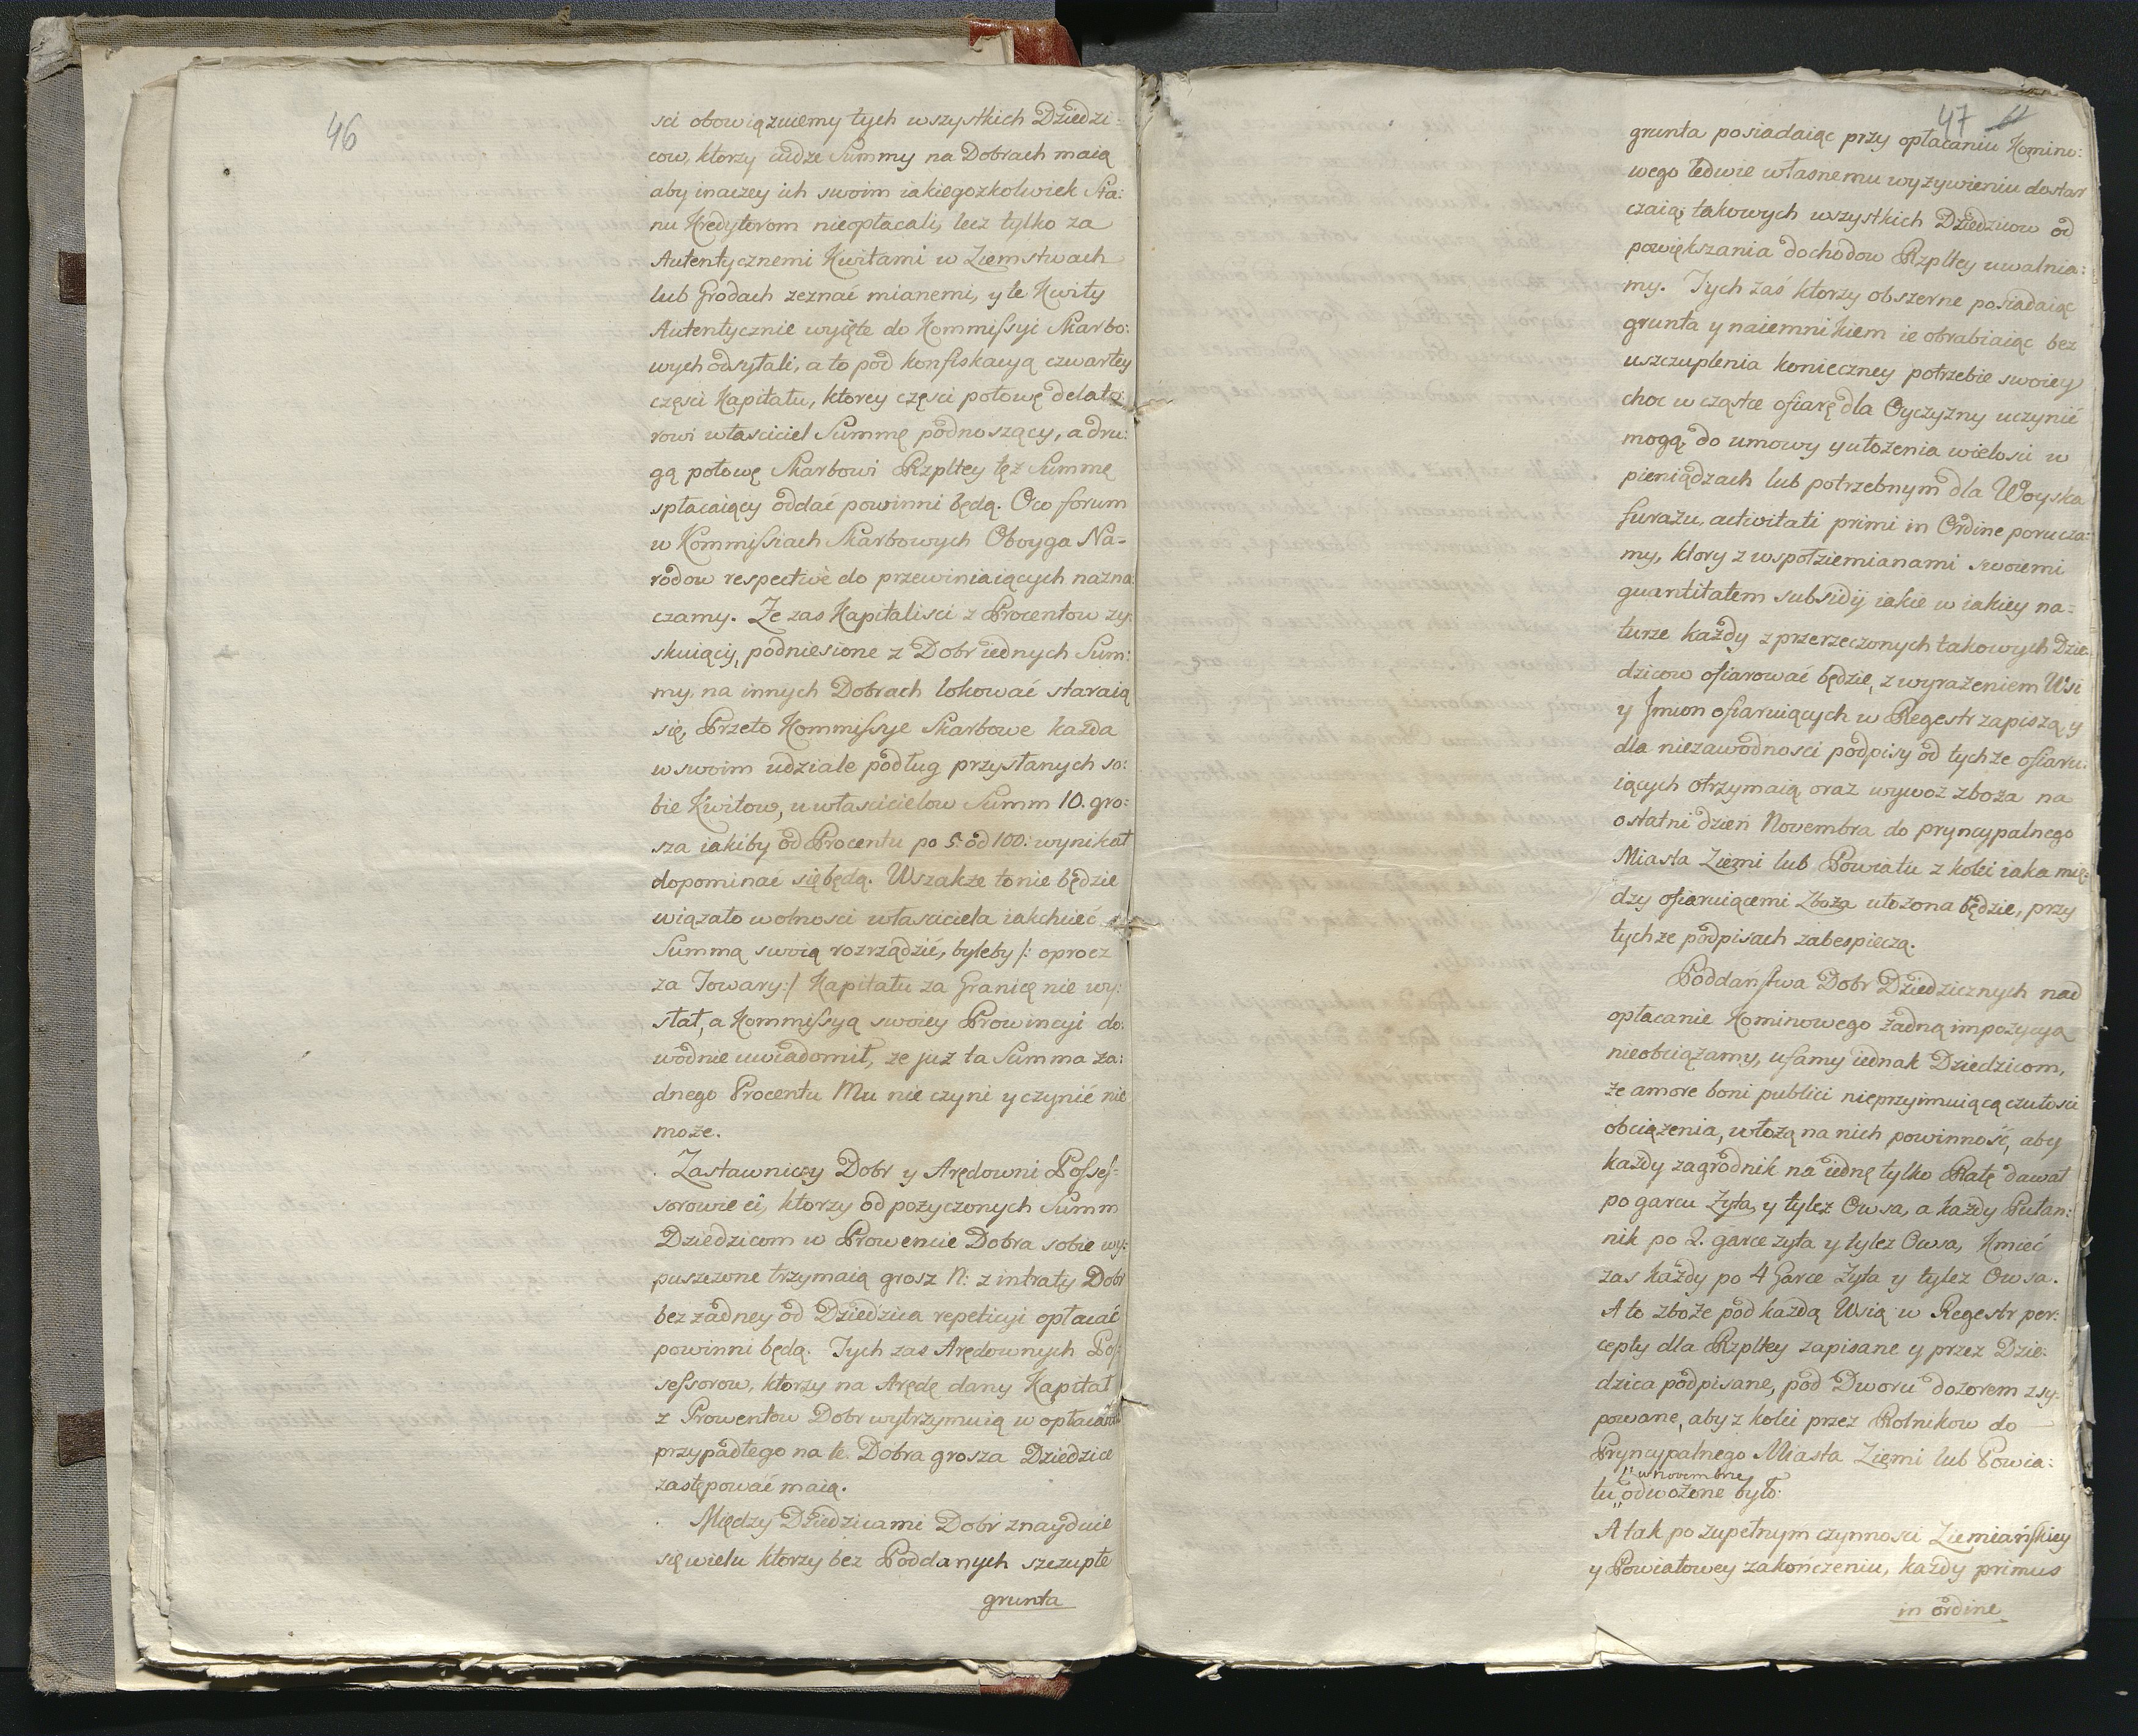 46
sci obowiązuiemy tych wszystkich Dziedzi=
cow, ktorzy cudze Summy na Dobrach maią
aby inaczey ich swoim iakiegozkolwiek Sta:
nu Kredytorom nieopłacali, lecz tylko za
Autentycznemi Kwitami w Ziemstwach
lub Grodach zeznać mianemi, y te Kwity
Autentycznie wyięte do Kommissyi Skarbo:
wych odsyłali, a to pod konfiskacyą czwartey
części Kapitału, ktorey części połowę delato:
rowi własciciel Summę podnoszący, a dru:
gą połowę Skarbowi Rzpltey tęż Summę
spłacaiący oddać powinni będą. Oco forum
w Kommissiach Skarbowych Oboyga Na=
rodow respective do przewiniaiących nazna:
czamy. Ze zas Kapitalisci z Procentow zy:
skuiący, podniesione z Dobr iednych Sum:
my, na innych Dobrach lokować staraią
się, Przeto Kommissye Skarbowe każda
w swoim udziale podług przysłanych so:
bie Kwitow, u właścicielow Summ 10. gro:
sza iakiby od Procentu po 5 od 100: wynikał
dopominać się będą. Wszakze to nie będzie
wiązało wolnosci własciciela iakchcieć
Summą swoią rozrządzić, byleby /: oprocz
za Towary :/ Kapitału za Granicę nie wy:
słał, a Kommissyą swoiey Prowincyi do:
wodnie uwiadomił, ze już ta Summa ża:
dnego Procentu Mu nie czyni y czynić nie
może.
Zastawnicy Dobr y Arędowni Posses=
sorowie ci, ktorzy od pożyczonych Summ
Dziedzicom w Prowencie Dobra sobie wy:
puszczone trzymaią grosz N: z intraty Dobr
bez żadney od Dziedzica repeticyi opłacać
powinni będą. Tych zas Arędownych Pos:
sessorow, ktorzy na Arędę dany Kapitał
z Prowentow Dobr wytrzymuią w opłacaniu
przypadłego na te Dobra grosza Dziedzice
zastępować maią.
Między Dziedzicami Dobr znayduie
się wielu ktorzy bez Poddanych szczupłe
grunta
47
grunta posiadaiąc przy opłacaniu Komino:
wego ledwie własnemu wyzywieniu dostar
czaią, takowych wszystkich Dziedzicow od
powiększania dochodow Rzpltey uwalnia:
my. Tych zaś ktorzy obszerne posiadaiąc
grunta y naiemnikiem ie obrabiaiąc bez
uszczuplenia konieczney potrzebie swoiey
choc w cząstce ofiarę dla Oyczyzny uczynić
mogą, do umowy y ułożenia wielosci w
pieniądzach lub potrzebnym dla Woyska
furażu, activitati primi in Ordine porucza:
my, ktory z wspołziemianami swoiemi
quantitatem subsidij iakie w iakiey na=
turze każdy z przerzeczonych takowych Dzie:
dzicow ofiarować będzie, z wyrażeniem Wsi
y Jmion ofiaruiących w Regestr zapiszą, y
dla niezawodnosci podpisy od tychze ofiaru:
iących otrzymaią oraz wywoz zboża na
ostatni dzień Novembra do pryncypalnego
Miasta Ziemi lub Powiatu z kolei iaka mię:
dzy ofiaruiącemi Zboża ułożona będzie, przy
tychze podpisach zabespieczą.
Poddaństwa Dobr Dziedzicznych nad
opłacanie Kominowego żadną impozycyą
nieobciążamy, ufamy iednak Dziedzicom,
że amore boni publici nieprzyimuiącą czułosci
obciążenia, włożą na nich powinność, aby
każdy zagrodnik na iednę tylko Ratę dawał
po garcu Żyta, y tylez Owsa, a każdy Pułan:
nik po 2. garce zyta y tylez Owsa, Kmieć
zas każdy po 4 Garce Żyta y tylez Owsa.
A to zboże pod każdą Wsią w Regestr per:
cepty dla Rzpltey zapisane y przez Dzie:
dzica podpisane, pod Dworu dozorem zsy:
powane, aby z kolei przez Rolnikow do
Pryncypalnego Miasta Ziemi lub Powia:
w novembrze
tu odwożone było.
A tak po zupełnym czynnosci Ziemiańskiey
y Powiatowey zakończeniu, każdy primus
in ordine